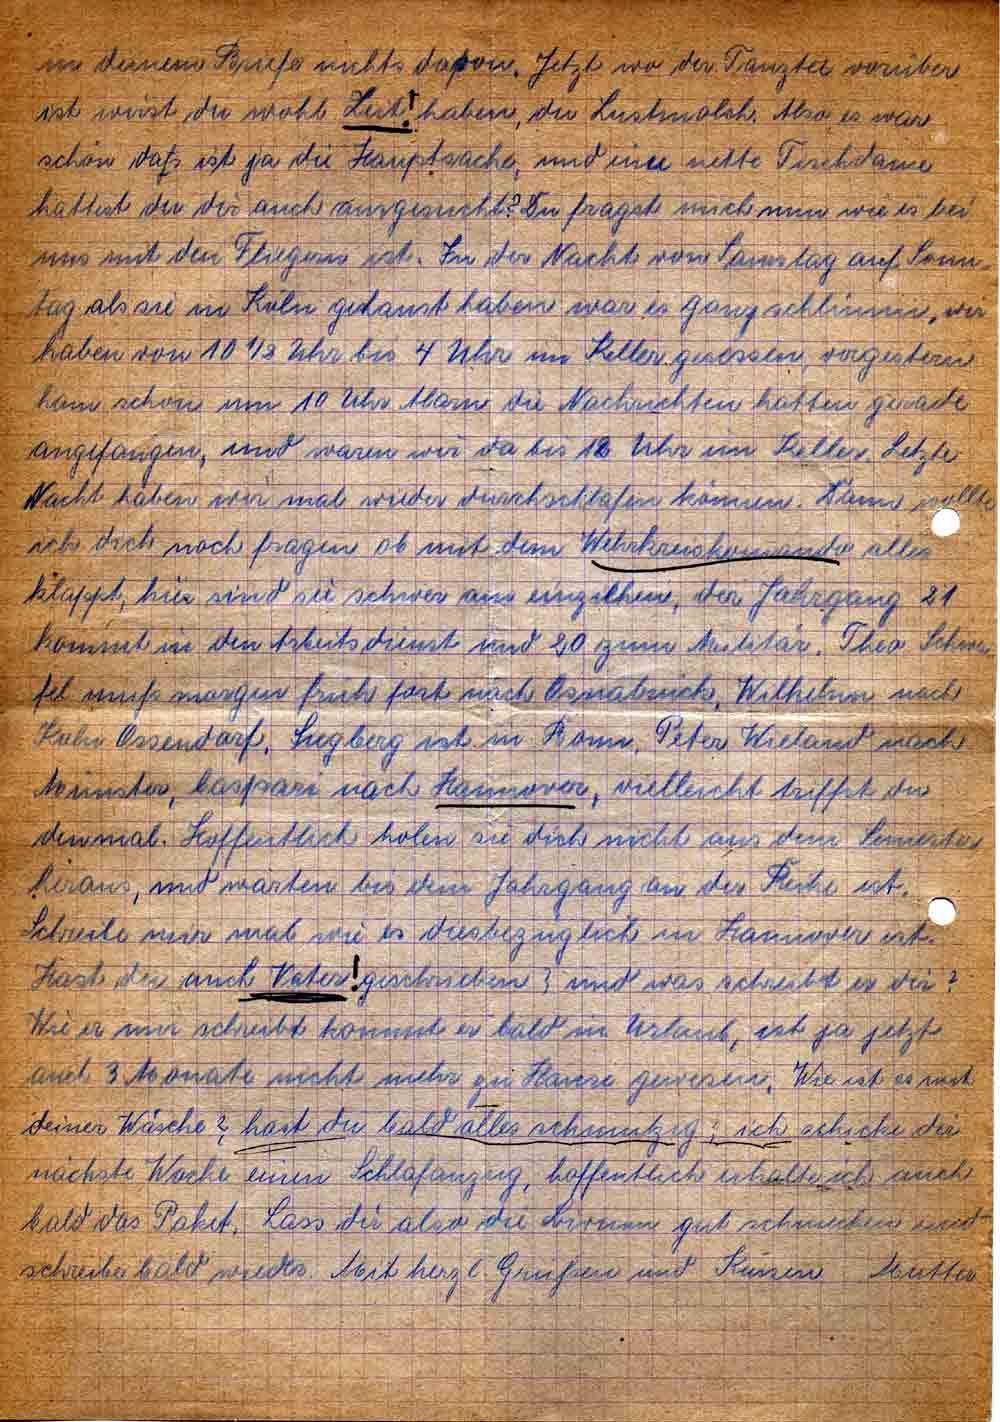 in deinem Briefe nichts davon. Jetzt wo der Tanztee vorüber
ist wirst du wohl Zeit! haben, du Lustmolch. Also es war
schön daß ist ja die Hauptsache, und eine nette Tischdame
hattest du dir auch ausgesucht? Du fragst mich nun wie es bei
uns mit den Fliegern ist. In der Nacht von Samstag auf Sonn-
tag als sie in Köln gehaust haben war es ganz schlimm, wir
haben von 10 1/2 Uhr bis 4 Uhr im Keller gesessen, vorgestern
kam schon um 10 Uhr Alarm die Nachrichten hatten gerade
angefangen, und waren wir da bis 12 Uhr im Keller. Letzte
Nacht haben wir mal wieder durchschlafen können. Dann wollte
ich dich noch fragen ob mit dem Wehrkreiskomando alles
klappt, hier sind sie schwer am einziehen, der Jahrgang 21
kommt in den Arbeitsdienst und 20 zum Militär. Theo Schwe
fel muß morgen früh fort nach Osnabrück, Wilhelm nach
Köln Ossendorf. Siegberg ist in Bonn, Peter Wieland nach
Münster, Caspari nach Hannover, vielleicht triffst du
den mal. Hoffentlich holen sie dich nicht aus dem Semester
heraus, und warten bis dein Jahrgang an der Reihe ist.
Schreibe mir mal wie es diesbezüglich in Hannover ist.
Hast du auch Vater! geschrieben? und was schreibt er dir?
Wie er mir schreibt kommt er bald in Urlaub, ist ja jetzt
auch 3 Monate nicht mehr zu Hause gewesen. Wie ist es mit
deiner Wäsche?, hast du bald alles schmutzig?, ich schicke dir
nächste Woche einen Schlafanzug, hoffentlich erhalte ich auch
bald das Paket. Lass dir also die Birnen gut schmecken und
schreibe bald wieder. Mit herzl Grüßen und Küssen Mutter